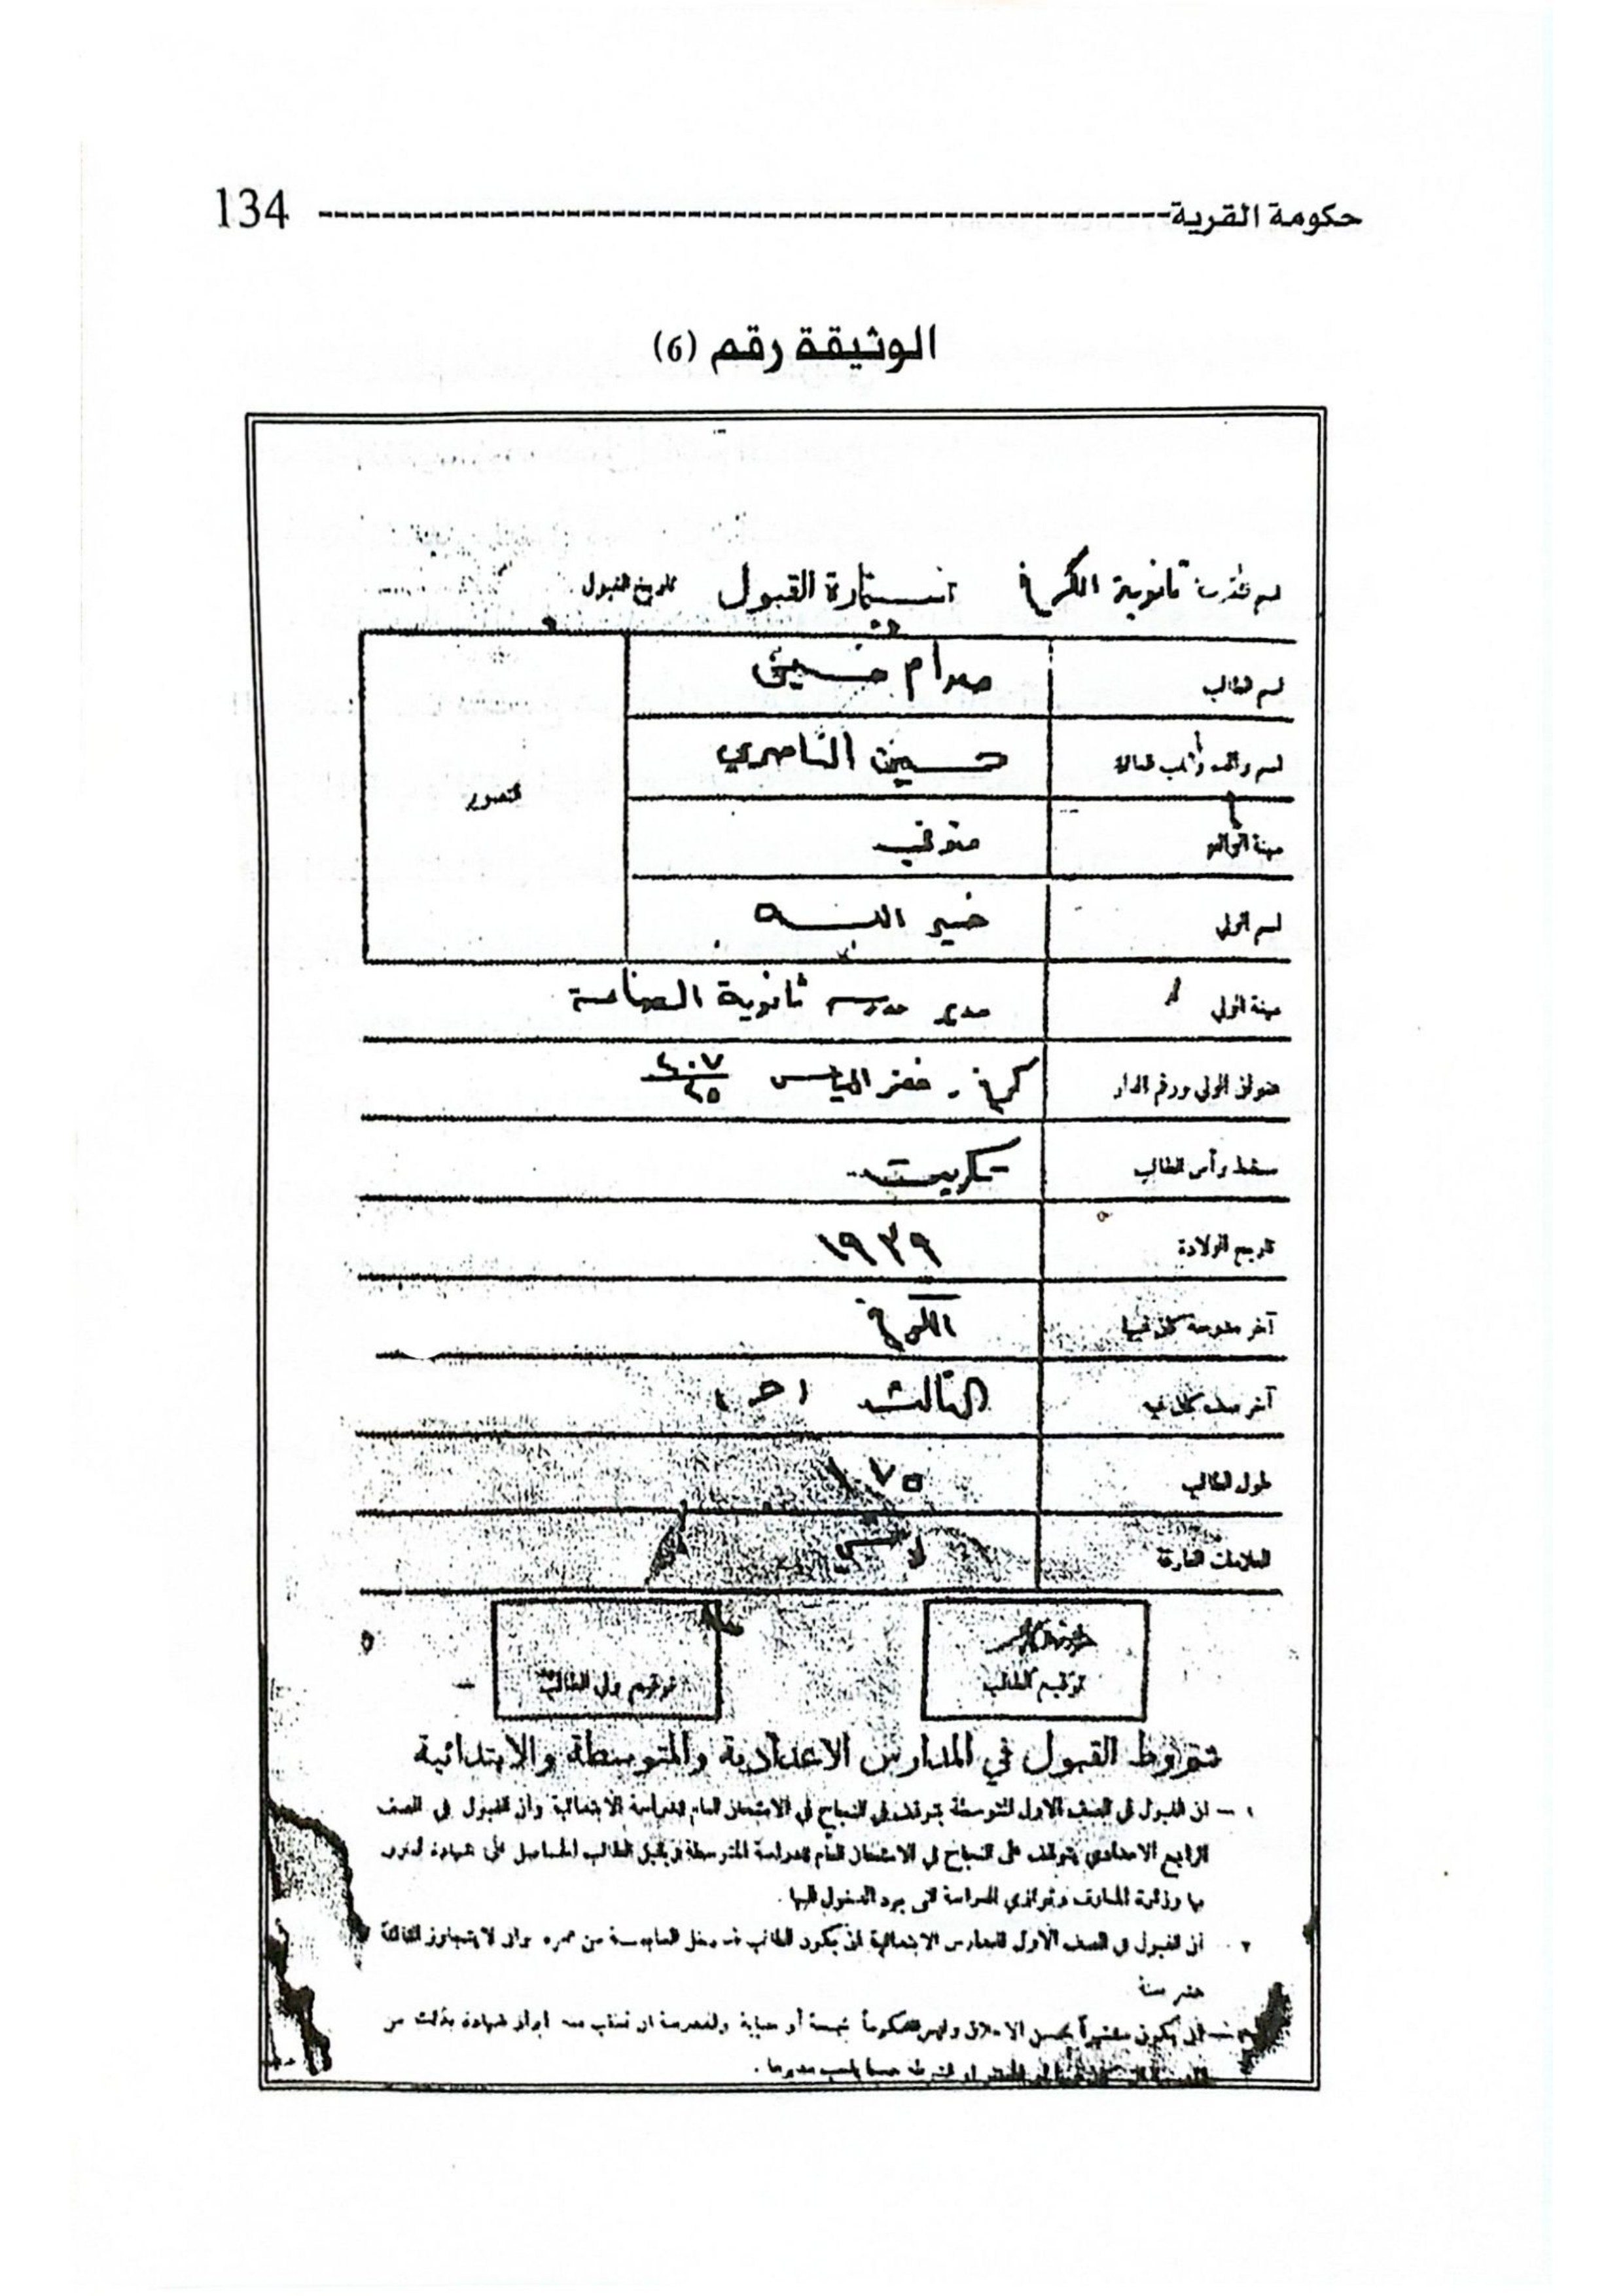 حكومة القرية 134
الوثيقة رقم (6)
ثانوية الكرخ استمارة القبول تاريخ القبول
اسم الطالب صدام حسين
حسين الناصري
مهنة الوالد متوفي
التصوير
اسم الولي خير الله
مهنة الولي مدير مدرسة ثانوية
عنوان الولي ورقم الدار كرخ - خضر الياس
مسقط رأس الطالب تكريت
تاريخ الولادة ١٩٣٩
آخر مدرسة كان فيها الكرخ
آخر صف كان فيه الثالث (ح)
طول الطالب ١٠٧٥
العلامات الفارقة
توقيع الطالب
توقيع ولي الطالب
شروط القبول في المدارس الاعدادية والمتوسطة والابتدائية
١ - ان القبول في الصف الاول المتوسطة يتوقف على النجاح في الامتحان العام للدراسة الابتدائية وان القبول في الصف
الرابع الاعدادي يتوقف على النجاح في الامتحان العام للدراسة المتوسطة ويقبل الطالب الحاصل على شهادة
بها وزارة المعارف وتوازي الدراسة التي يود الدخول اليها .
٢ - ان القبول في الصف الاول للمدارس الابتدائية ان يكون الطالب قد دخل السادسة من عمره وان لا يتجاوز الثالثة
عشر سنة
ان يكون بحسن الاخلاق وليس محكوماً بجنحة أو جناية وللمدرسة ان تطلب منه ابراز شهادة بذلك من